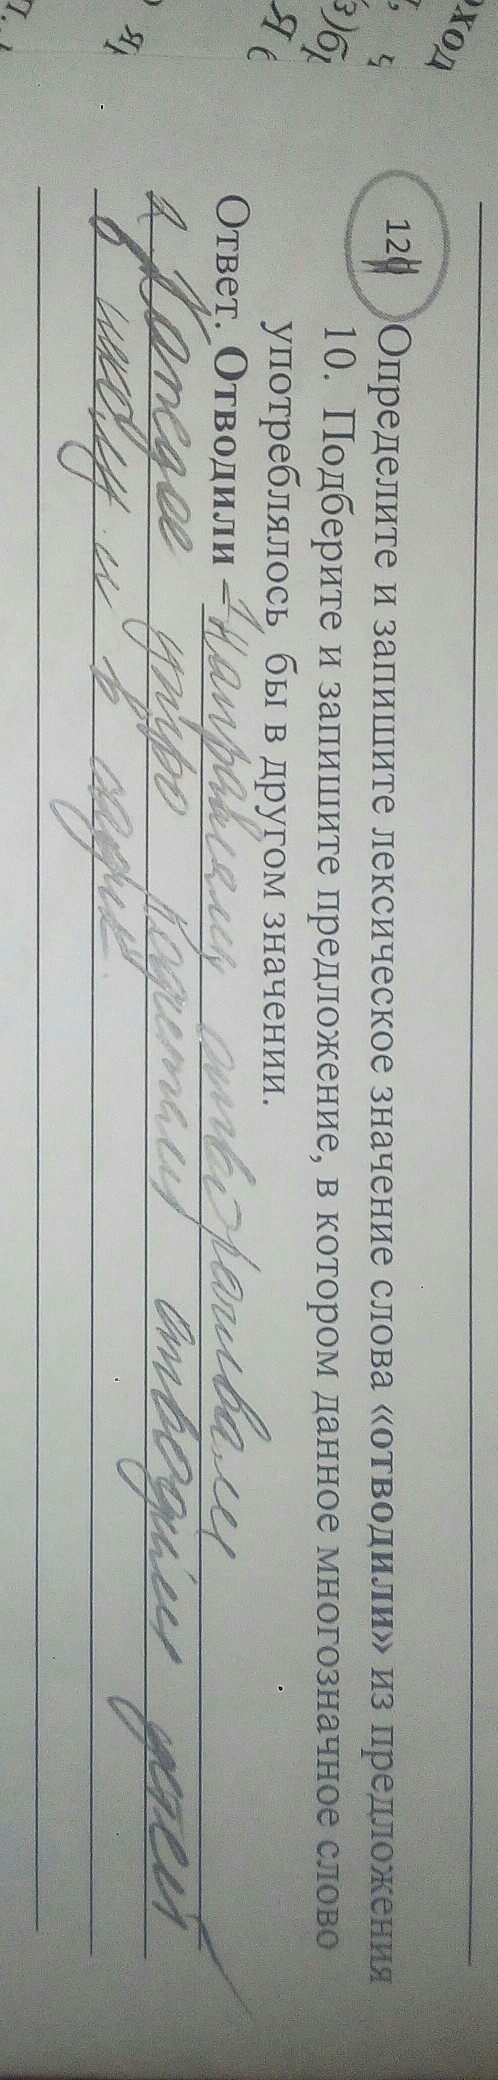 12
Определите и запишите лексическое значение слова «отводили» из предложения
10. Подберите и запишите предложение, в котором данное многозначное слово
употреблялось бы в другом значении.
Ответ. Отводили – направляли отворачивали
Каждое утро родители отводили детей
в школу и в садик.